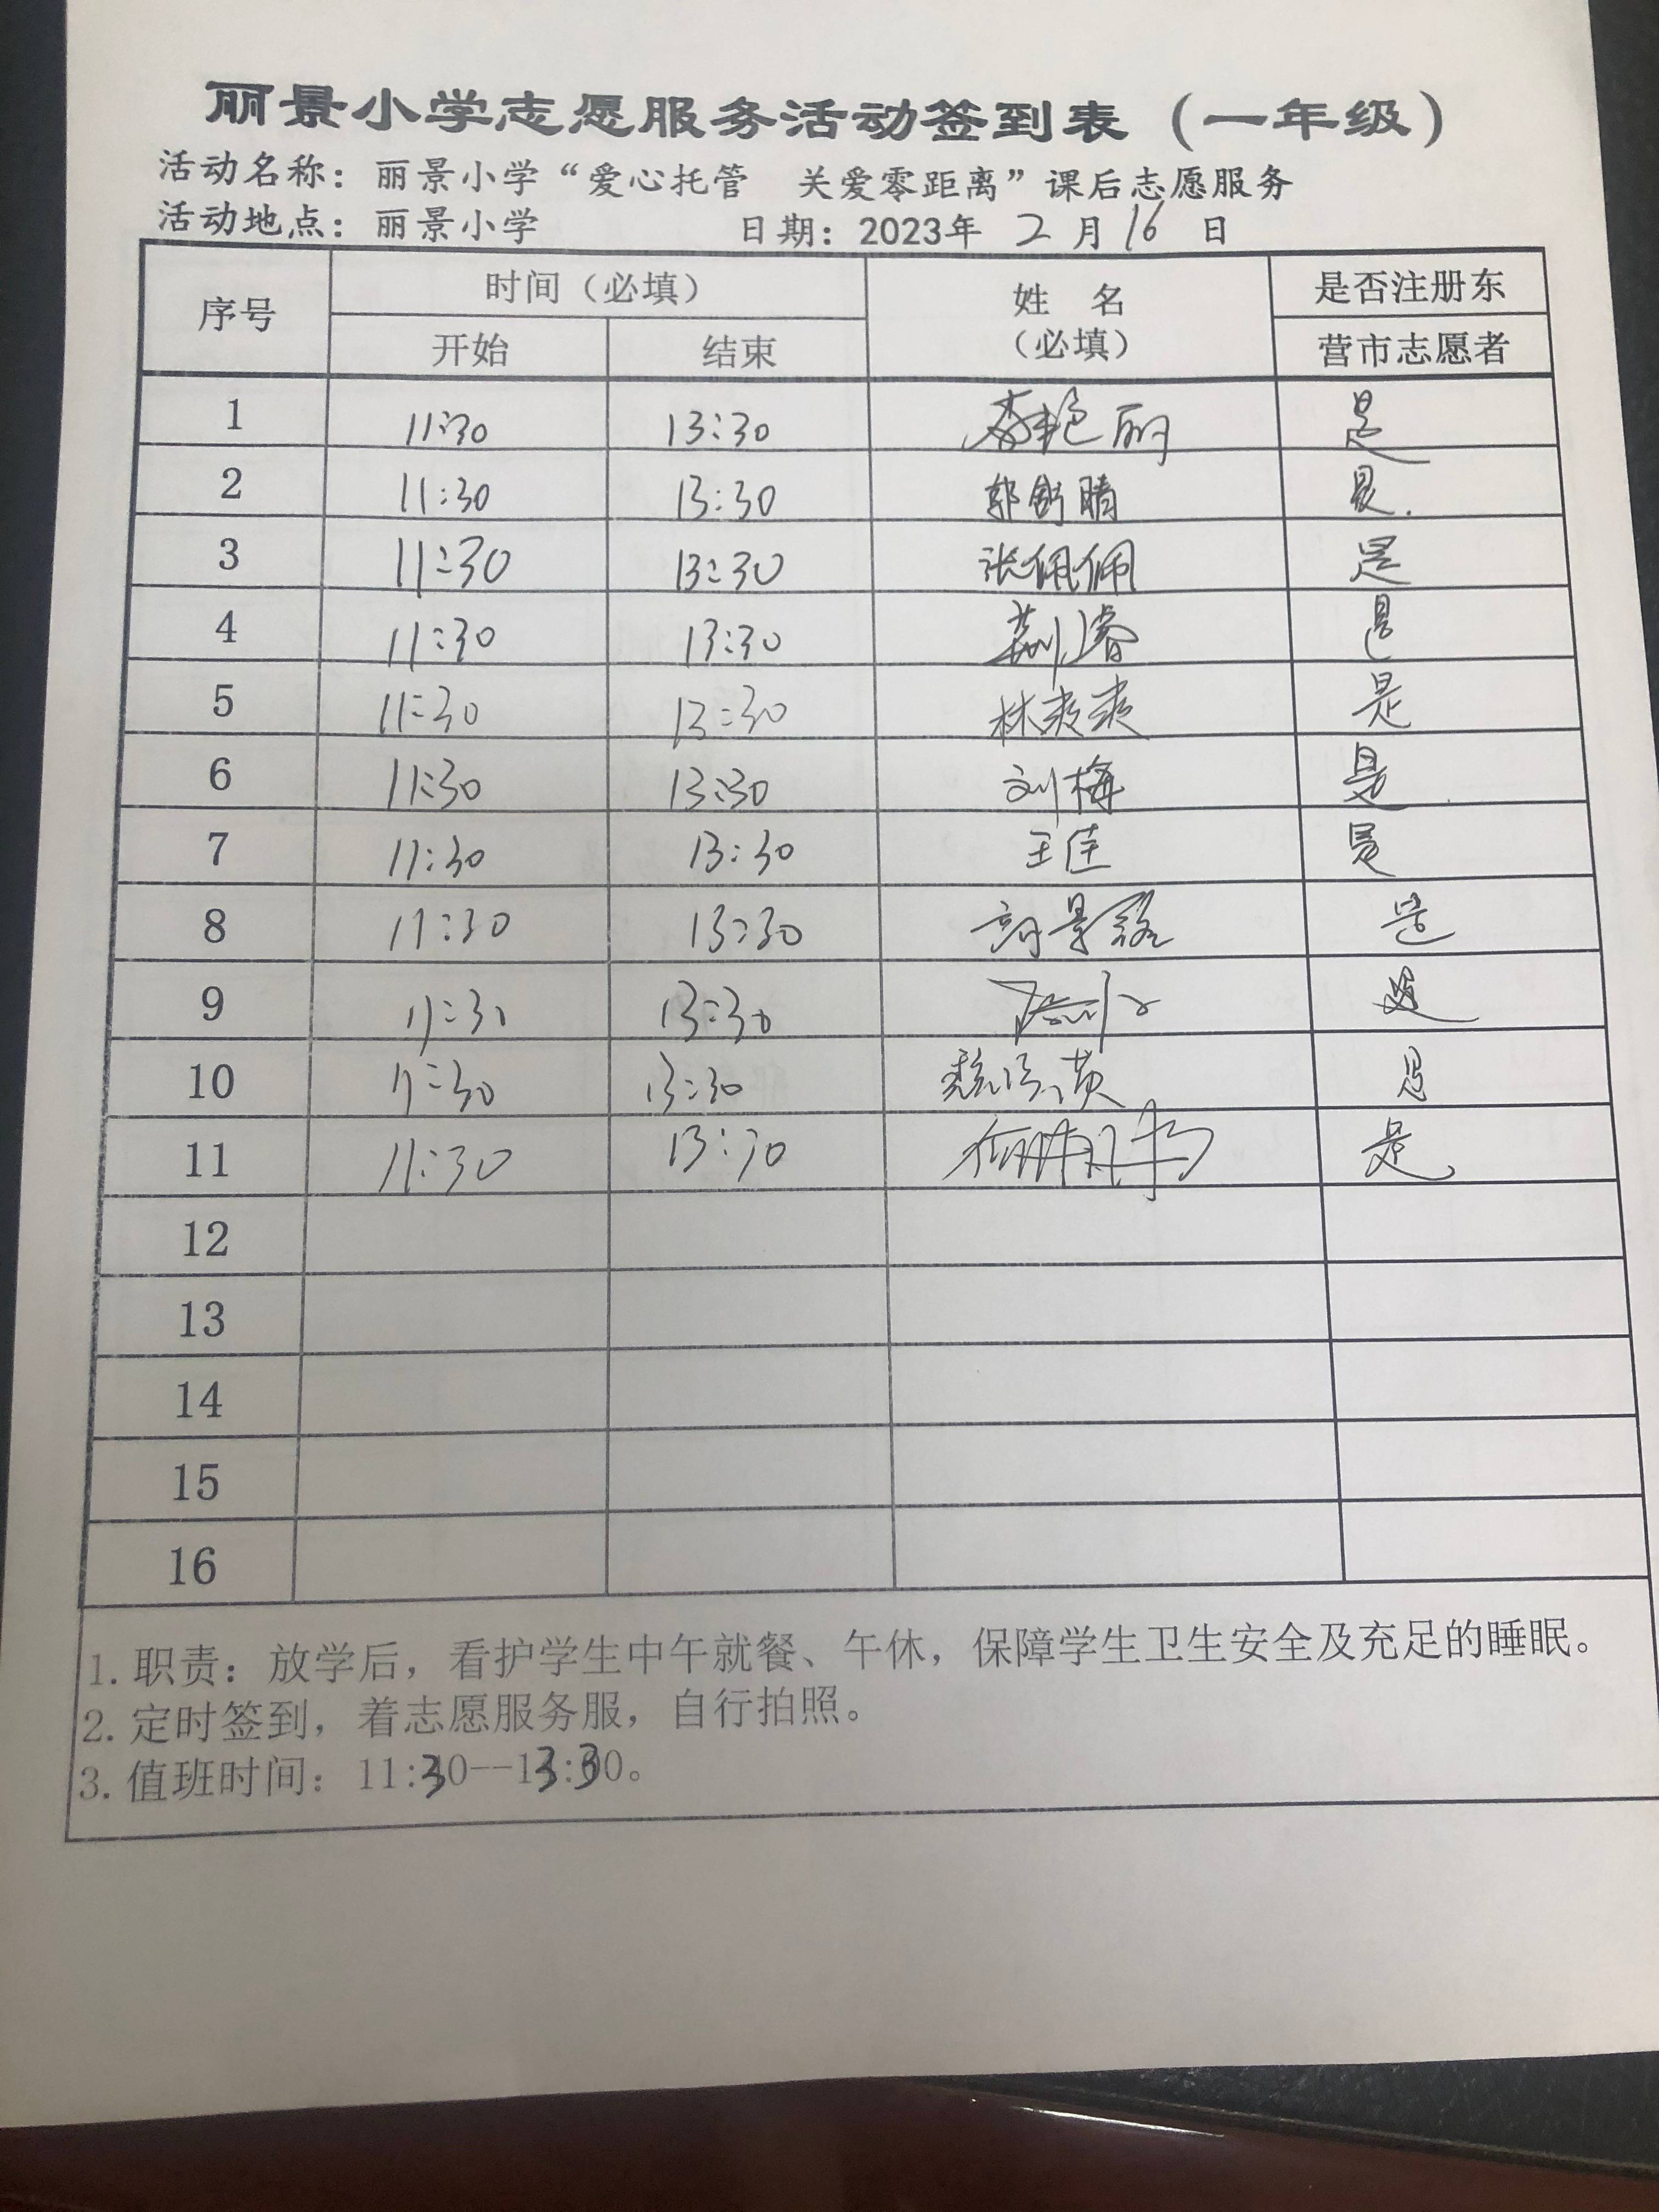 丽景小学志愿服务活动签到表（一年级）
活动名称：丽景小学“爱心托管 关爱零距离”课后志愿服务
活动地点：丽景小学 日期：2023年 2 月 16 日
序号 时间（必填） 姓 名（必填） 是否注册东营市志愿者
开始 结束
1 11:30 13:30 李艳丽 是
2 11:30 13:30 郭舒晴 是.
3 11:30 13:30 张佩佩 是
4 11:30 13:30 是
5 11:30 13:30 林爽爽 是
6 11:30 13:30 刘梅 是
7 11:30 13:30 王佳 是
8 11:30 13:30 是
9 11:30 13:30 是
10 11:30 13:30 是
11 11:30 13:30 是
12
13
14
15
16
1. 职责：放学后，看护学生中午就餐、午休，保障学生卫生安全及充足的睡眠。
2. 定时签到，着志愿服务服，自行拍照。
3. 值班时间：11:30--13:30。